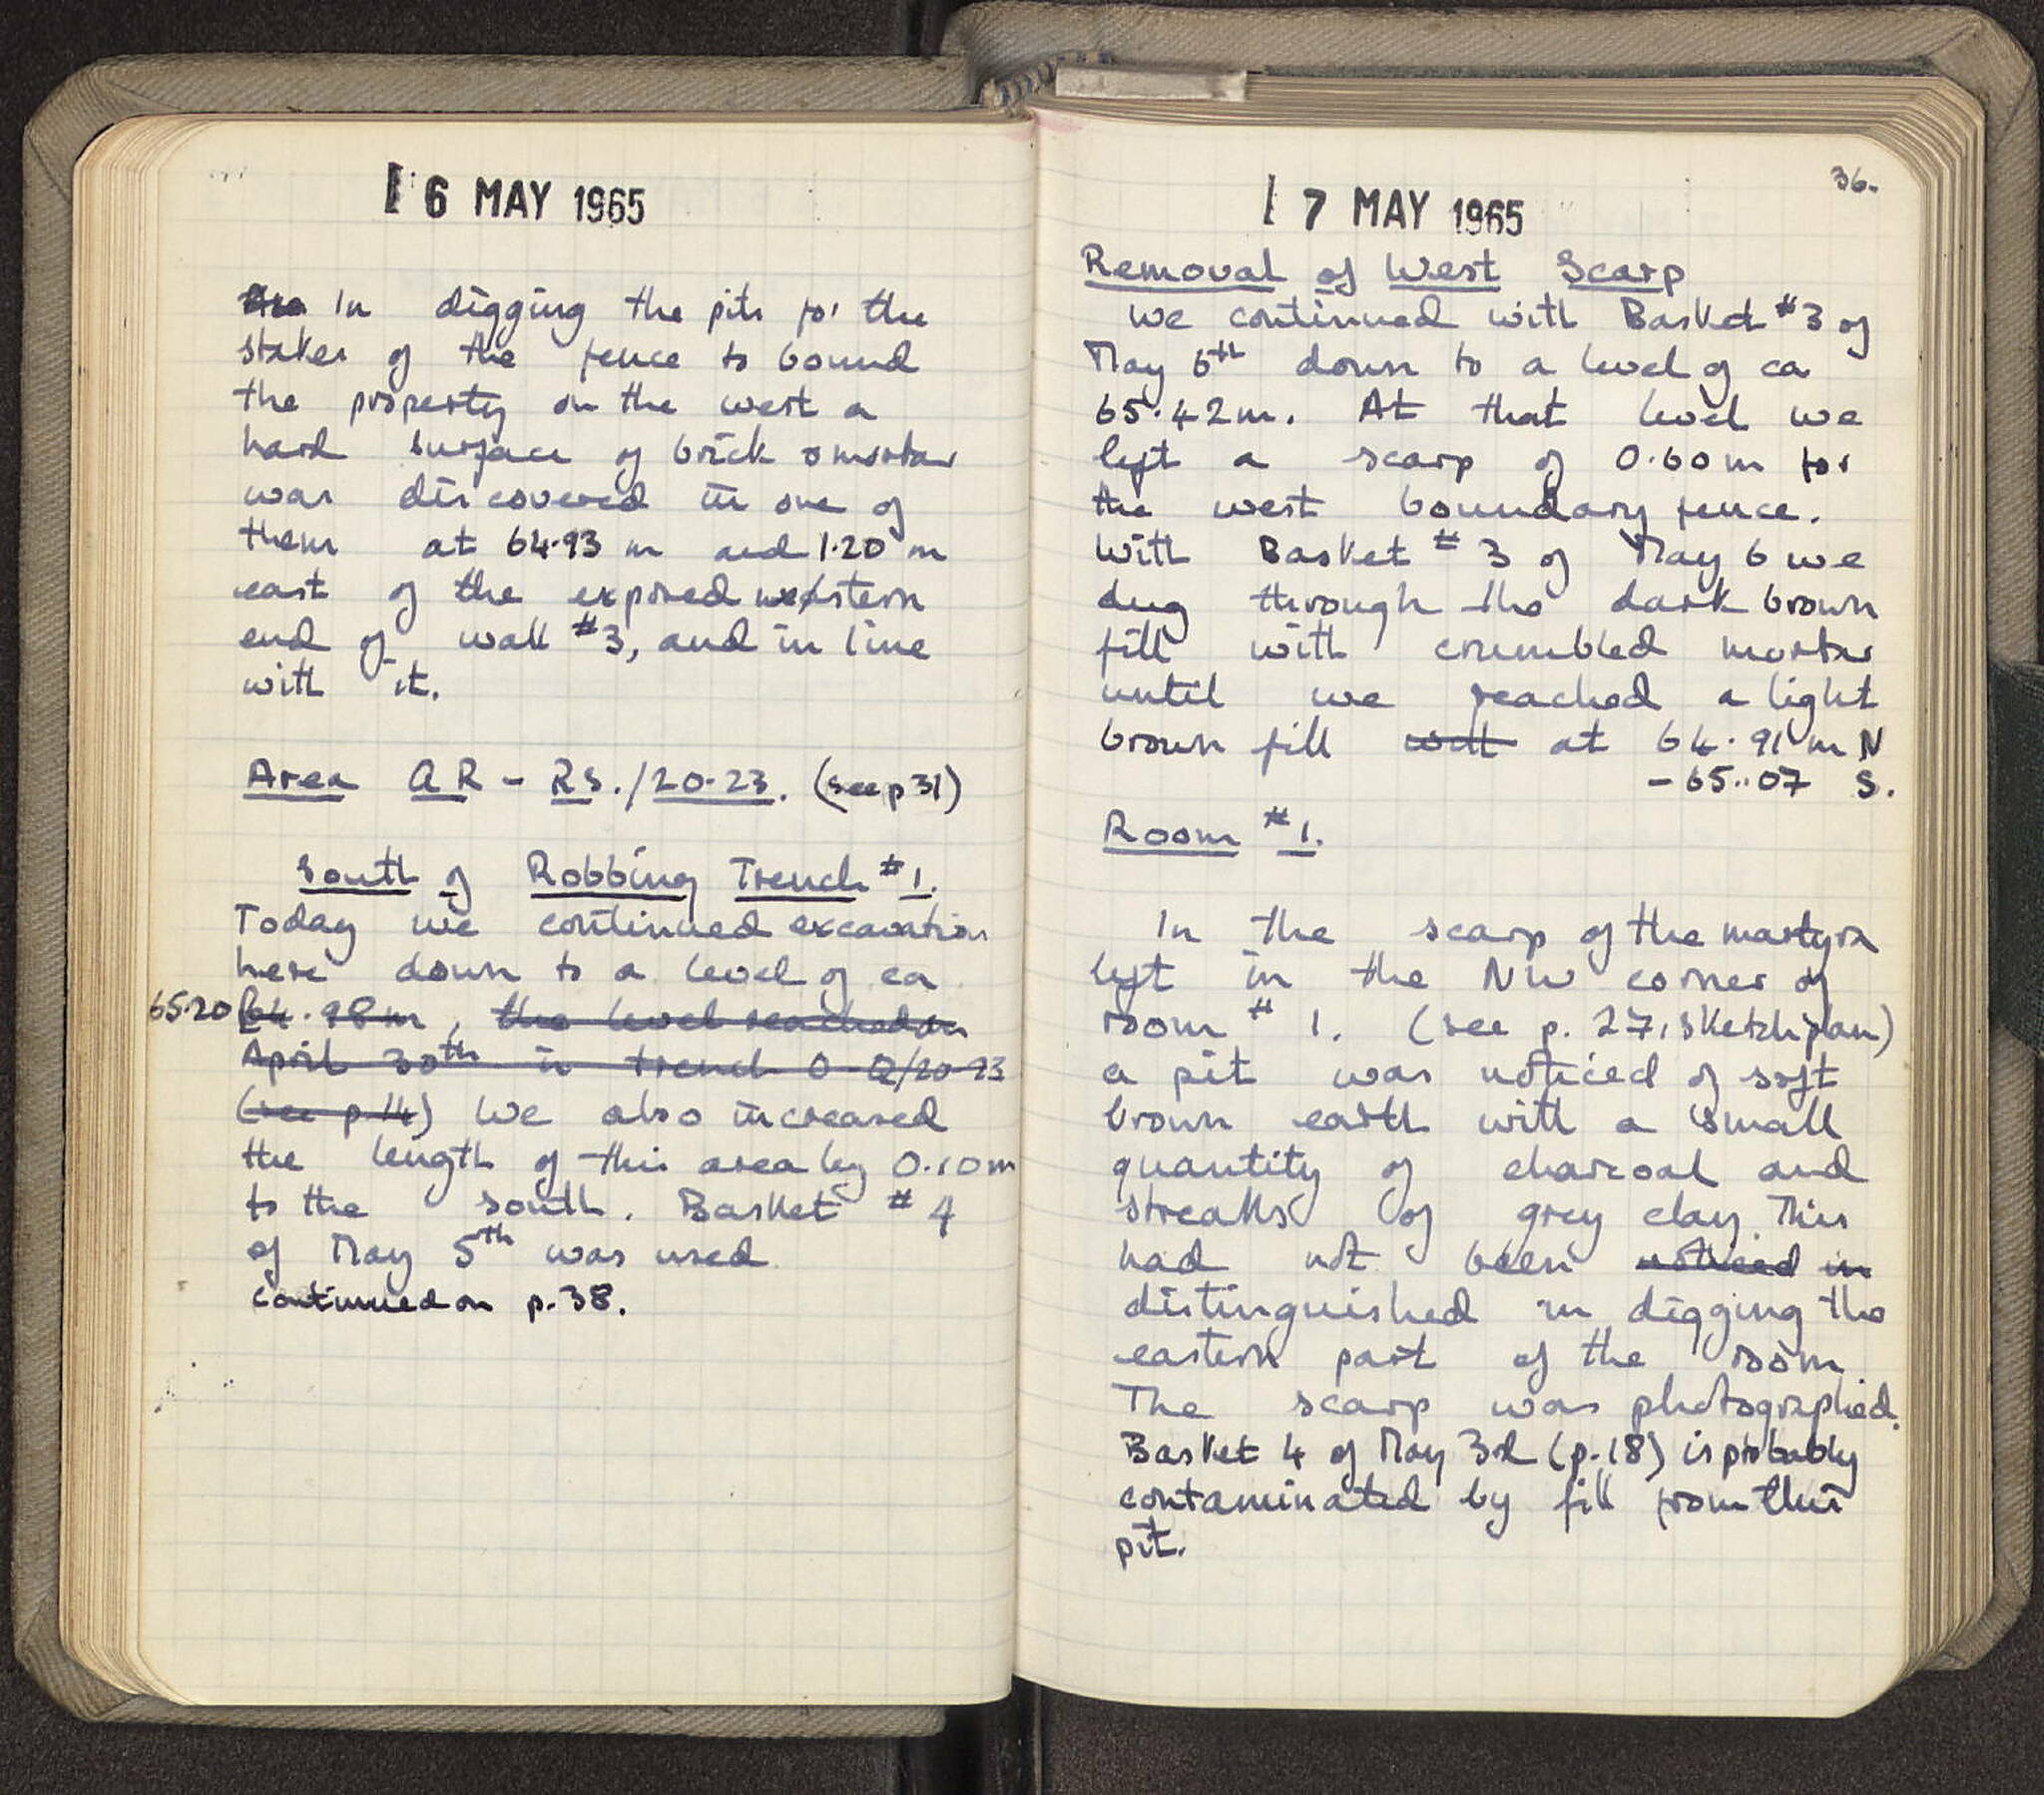 6 MAY 1965
In digging the pits for the
stakes of the fence to bound
the property on the west a
hard surface of brick & mortar
was discovered in one of
them at 64.93 m and 1.20 m
east of the exposed western
end of wall #3, and in line
with it.
Area QR - RS./20-23. (see p 31)
South of Robbing Trench #1.
Today we continued excavation
here down to a level of ca
65.20 64.98m, the level reached on
April 30th in trench O-Q/20-23
(see p 14) We also increased
the length of this area by 0.10m
to the south. Basket #4
of May 5th was used
continued on p. 38.
36.
7 MAY 1965
Removal of West Scarp
We continued with Basket #3 of
May 6th down to a level of ca
65.42m. At that level we
left a scarp of 0.60m for
the west boundary fence.
With Basket #3 of May 6 we
dug through the dark brown
fill with crumbled mortar
until we reached a light
brown fill with at 64.91m N
-65.07 S.
Room #1.
In the scarp of the martyra
left in the NW corner of
room #1. (see p. 27, sketch plan)
a pit was noticed of soft
brown earth with a small
quantity of charcoal and
streaks of grey clay. This
had not been noticed in
distinguished in digging the
eastern part of the room
The scarp was photographed.
Basket 4 of May 3d (p.18) is probably
contaminated by fill from this
pit.